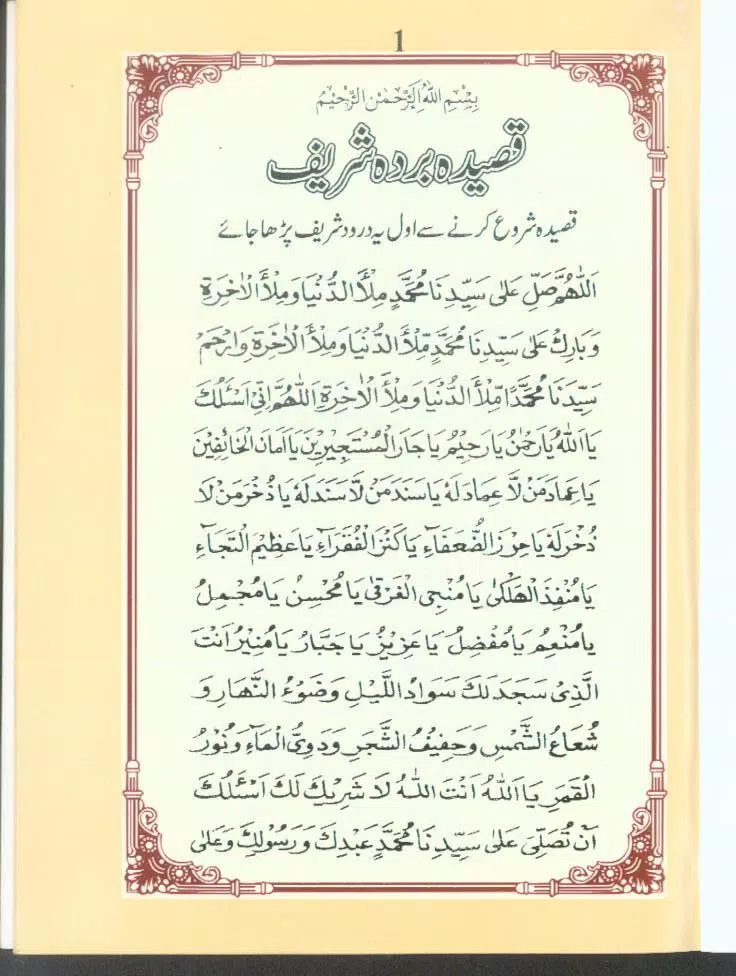 1
بِسْمِ اللهِ الرَّحْمٰنِ الرَّحِيْمِ
قصیدہ بردہ شریف
قصیدہ شروع کرنے سے اول یہ درود شریف پڑھا جائے
اَللّٰهُمَّ صَلِّ عَلٰى سَيِّدِنَا مُحَمَّدٍ مِلْأَ الدُّنْيَا وَمِلْأَ الْاٰخِرَةِ
وَبَارِكْ عَلٰى سَيِّدِنَا مُحَمَّدٍ مِّلْأَ الدُّنْيَا وَمِلْأَ الْاٰخِرَةِ وَارْحَمْ
سَيِّدَنَا مُحَمَّدًا مِّلْأَ الدُّنْيَا وَمِلْأَ الْاٰخِرَةِ اَللّٰهُمَّ اِنِّىْ اَسْئَلُكَ
يَا اَللهُ يَا رَحْمٰنُ يَا رَحِيْمُ يَا جَارَ الْمُسْتَجِيْرِيْنَ يَا اَمَانَ الْخَائِفِيْنَ
يَا عِمَادَ مَنْ لَّا عِمَادَ لَهٗ يَا سَنَدَ مَنْ لَّا سَنَدَ لَهٗ يَا ذُخْرَ مَنْ لَا
ذُخْرَ لَهٗ يَا حِرْزَ الضُّعَفَآءِ يَا كَنْزَ الْفُقَرَآءِ يَا عَظِيْمَ الْتَجَآءِ
يَا مُنْقِذَ الْهَلْكٰى يَا مُنْجِىَ الْغَرْقٰى يَا مُحْسِنُ يَا مُجْمِلُ
يَا مُنْعِمُ يَا مُفْضِلُ يَا عَزِيْزُ يَا جَبَّارُ يَا مُنِيْرُ اَنْتَ
الَّذِىْ سَجَدَ لَكَ سَوَادُ اللَّيْلِ وَضَوْءُ النَّهَارِ وَ
شُعَاعُ الشَّمْسِ وَحَفِيْفُ الشَّجَرِ وَدَوِىُّ الْمَآءِ وَنُوْرُ
الْقَمَرِ يَا اَللهُ اَنْتَ اللهُ لَا شَرِيْكَ لَكَ اَسْئَلُكَ
اَنْ تُصَلِّىَ عَلٰى سَيِّدِنَا مُحَمَّدٍ عَبْدِكَ وَرَسُوْلِكَ وَعَلٰى